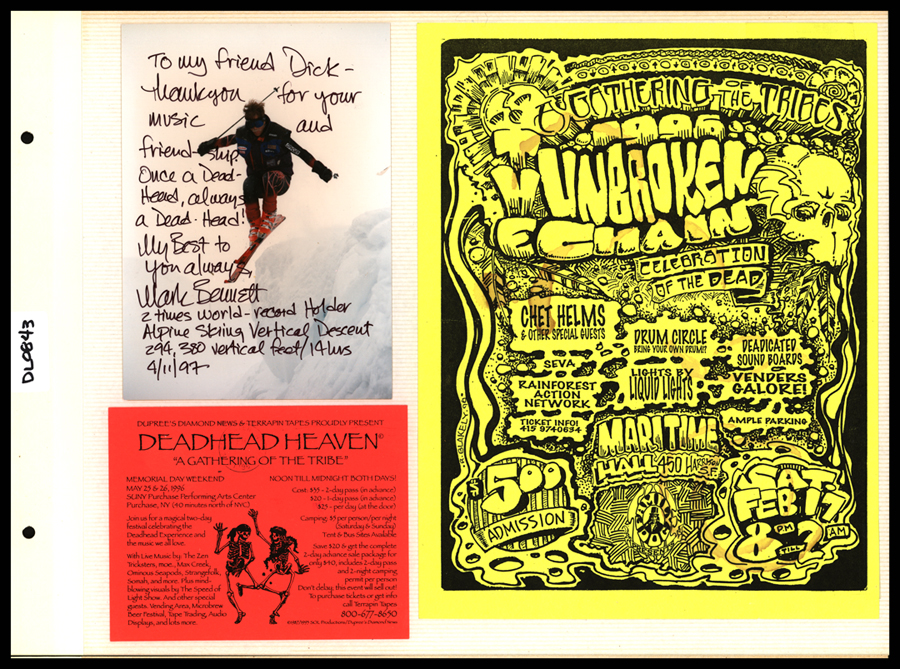 To my friend Dick-
Thank you for your
music and
friend-ship.
Once a Dead-
Head, always
a Dead-Head!
My Best to
you always,
Mark Bennett
2 times world-record Holder
Alpine Skiing Vertical Descent
294,380 vertical feet/14hrs
4/11/97
DL0843
DUPREE'S DIAMOND NEWS & TERRAPIN TAPES PROUDLY PRESENT
DEADHEAD HEAVEN©
"A GATHERING OF THE TRIBE"
MEMORIAL DAY WEEKEND
MAY 25 & 26, 1996
SUNY Purchase Performing Arts Center
Purchase, NY (40 minutes north of NYC)
Join us for a magical two-day
festival celebrating the
Deadhead Experience and
the music we all love.
With Live Music by: The Zen
Tricksters, moe., Max Creek,
Ominous Seapods, Strangefolk,
Somah, and more. Plus mind-
blowing visuals by The Speed of
Light Show. And other special
guests. Vending Area, Microbrew
Beer Festival, Tape Trading, Audio
Displays, and lots more.
NOON TILL MIDNIGHT BOTH DAYS!
Cost: $35 - 2-day pass (in advance)
$20 - 1-day pass (in advance)
$25 - per day (at the door)
Camping: $5 per person/per night
(Saturday & Sunday)
Tent & Bus Sites Available
Save $20 & get the complete
2-day advance sale package for
only $40, includes 2-day pass
and 2-night camping
permit per person
Don't delay, this event will sell out!
To purchase tickets or get info
call Terrapin Tapes
800-677-8650
GATHERING OF THE TRIBES
1996
UNBROKEN
CHAIN
CELEBRATION
OF THE DEAD
CHET HELMS
& OTHER SPECIAL GUESTS
SEVA
RAINFOREST
ACTION
NETWORK
TICKET INFO!
415 9740634
DRUM CIRCLE
BRING YOUR OWN DRUM!?
LIGHTS BY
LIQUID LIGHTS
DEADICATED
SOUND BOARDS
VENDERS
GALORE!
AMPLE PARKING
MARITIME
HALL 450
$500
ADMISSION
SAT.
FEB 17
8 PM TILL 2 AM
BLAKELY